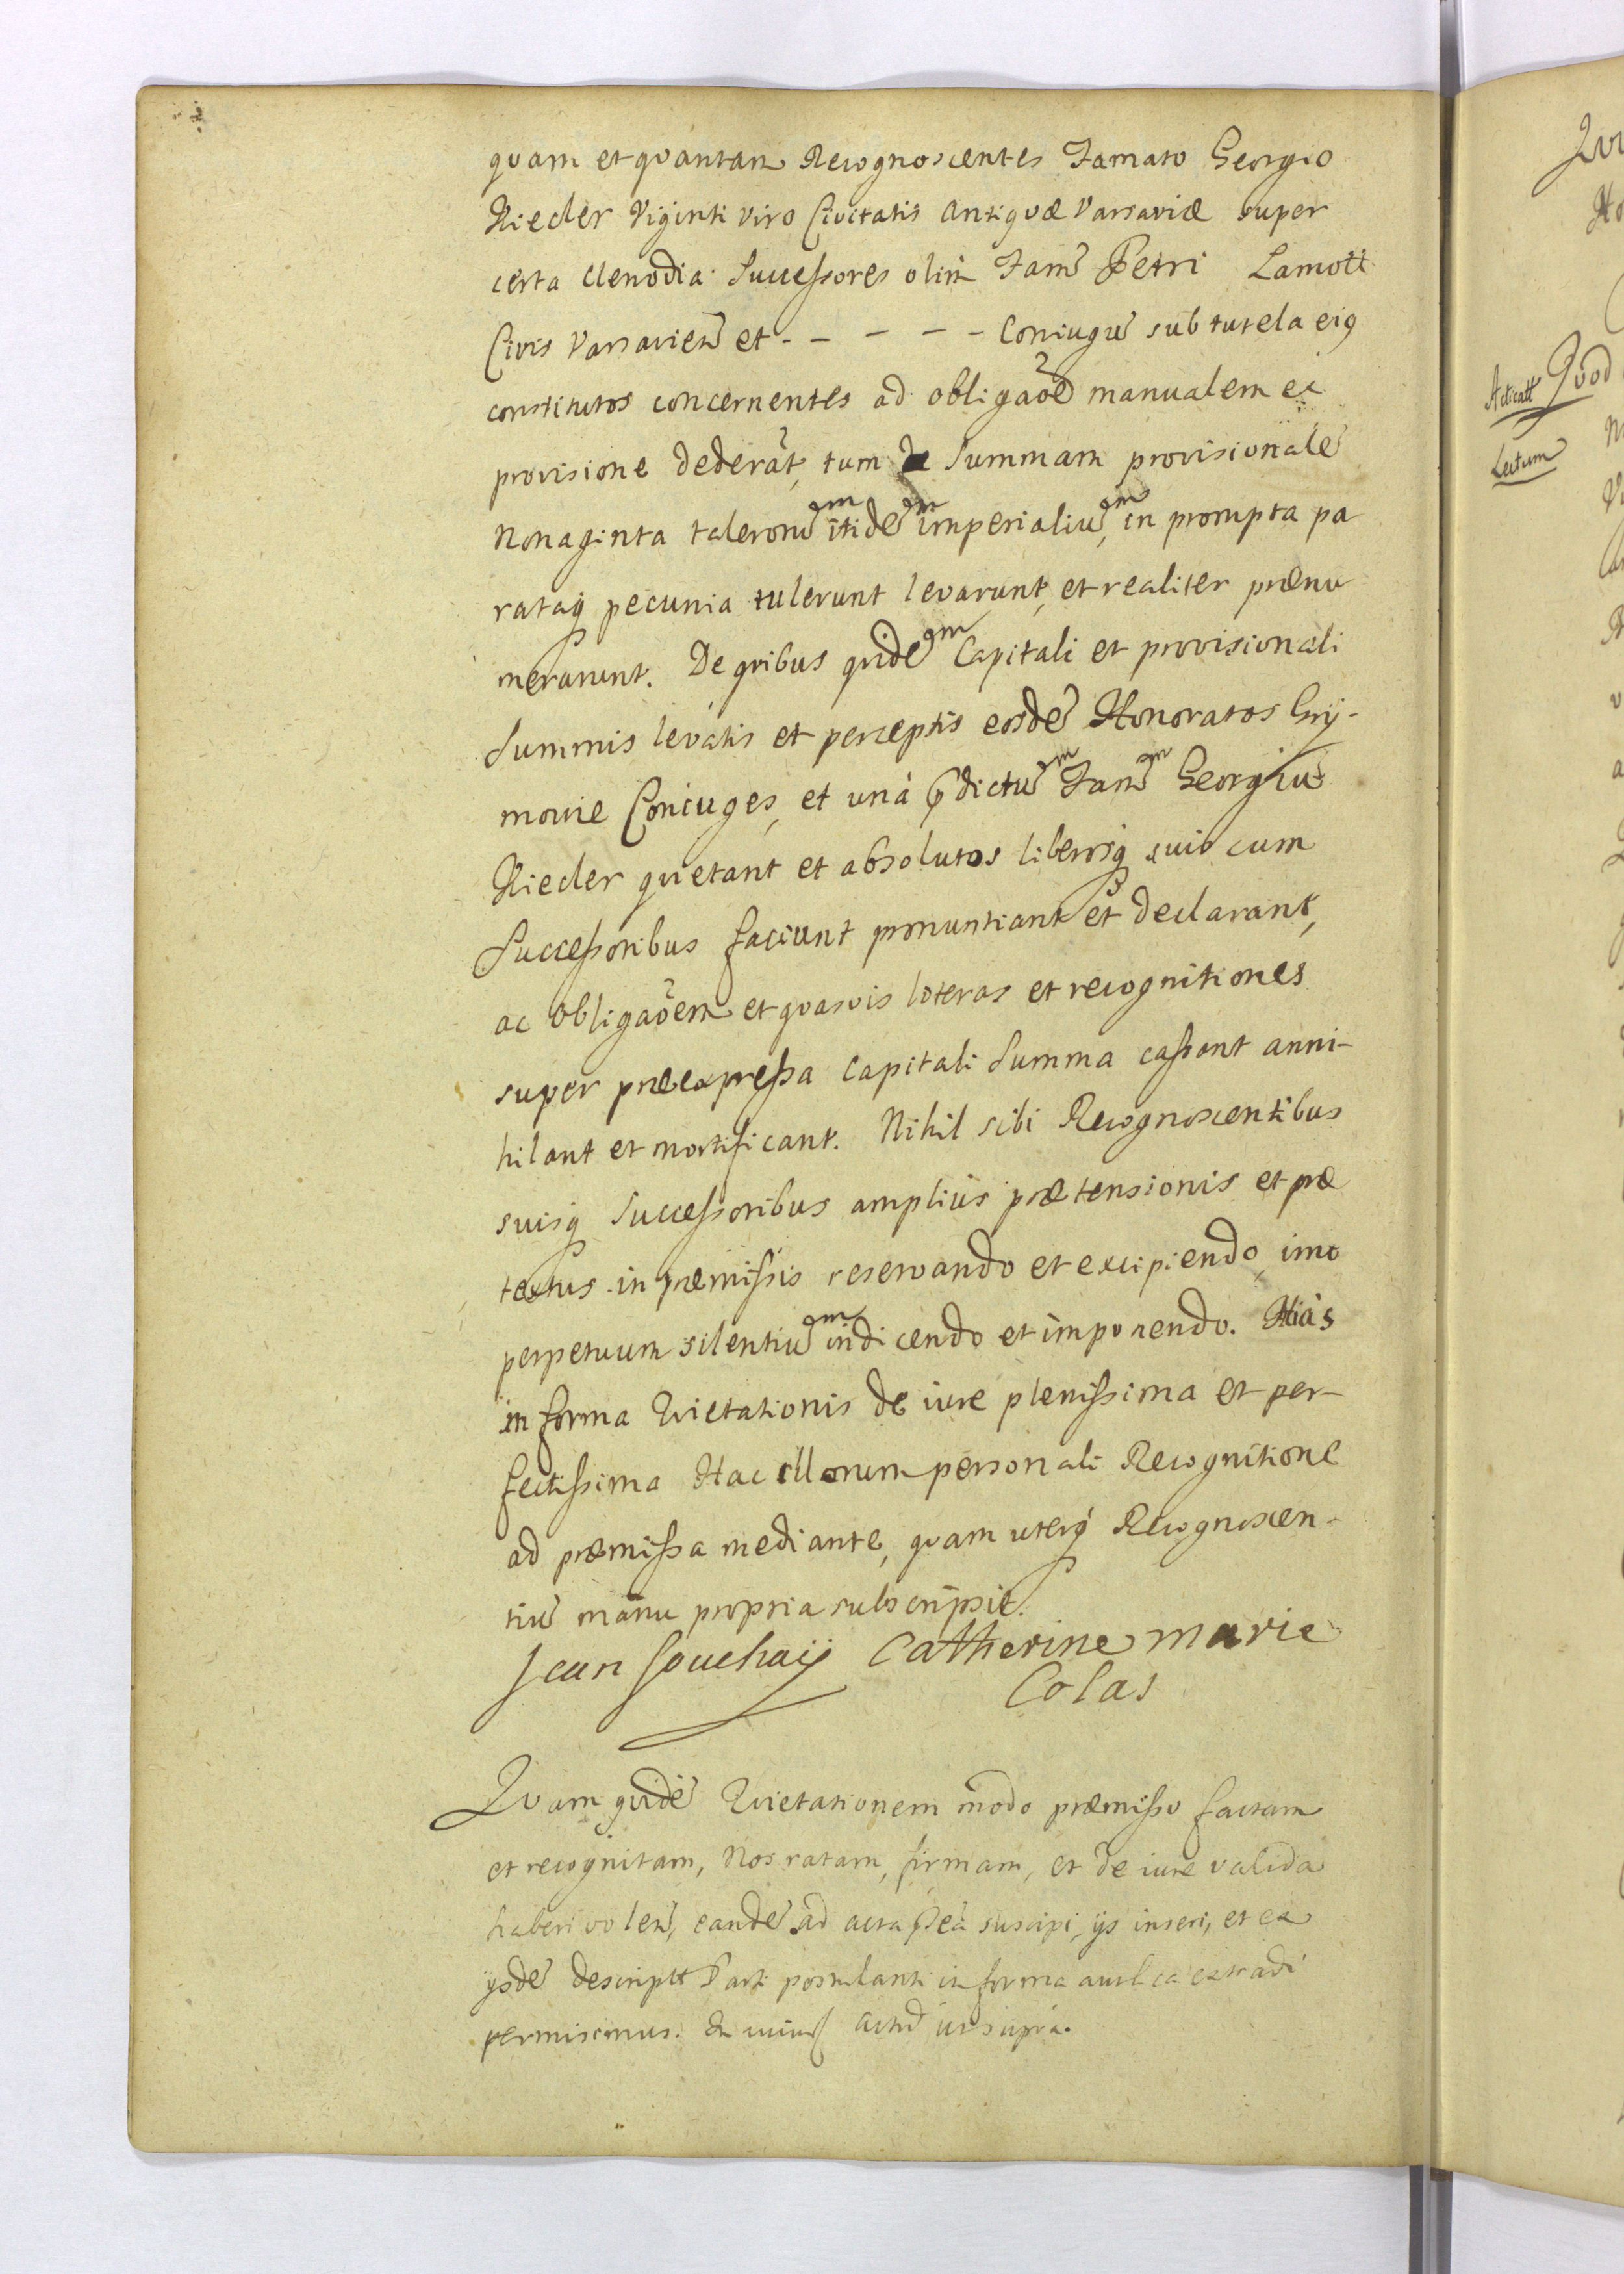 quam et quantam Recognoscentes Famato Georgio
Rieder Viginti viro Civitatis Antiquæ Varsaviæ super
certa clenodia Successores olim Fam̃ Petri Lamott
Civis Varsavieñ et - - - - - Coniugũ sub tutela eiq
constitutos concernentes ad obligaõẽ manualem ex
provisione dederãt, tum Summam provisionalẽ
Nonaginta talerorũ itidẽ imperialiũ, in prompta pa
rataq pecunia tulerunt levarunt, et realiter prænu
merarunt. De qribus qridẽ Capitali et provisionali
Summis levatis et perceptis eosdẽ Honoratos Grÿ-
movie Coniuges, et unà p̃dictũ Fam̃ Georgiũ
Rieder quietant et absolutos liberosq suis cum
Successoribus faciunt pronuntiant et declarant,
ac obligaõem et quasvis literas et recognitiones
super præexpressa Capitali Summa cassant anni-
hilant et mortificant. Nihil sibi Recognoscentibus
suisq Successoribus amplius prætensionis et præ
textus in præmissis reservando et excipiendo, imo
perpetuum silentiũ indicendo et imponendo.
in forma Quietationis de iure plenissima et per-
fectissima Hac illorum personali Recognitione
ad præmissa mediante, quam uterq Recognoscen-
tiũ manu propria subscripsit.
Jean Souchaÿ Catherine Marie
Colas
Quam quidẽ Quietationem modo præmisso factam
et recognitam, Nos ratam, firmam, et de iure validã
haberi voleñ, eandẽ ad acta p̃ña suscipi, ijs inseri, et ex
ijsdẽ descriptt Parti postulanti in forma aut̃ca extradi
permisimus. Actũ ut supra.
Acticatt
Lectum
Quod